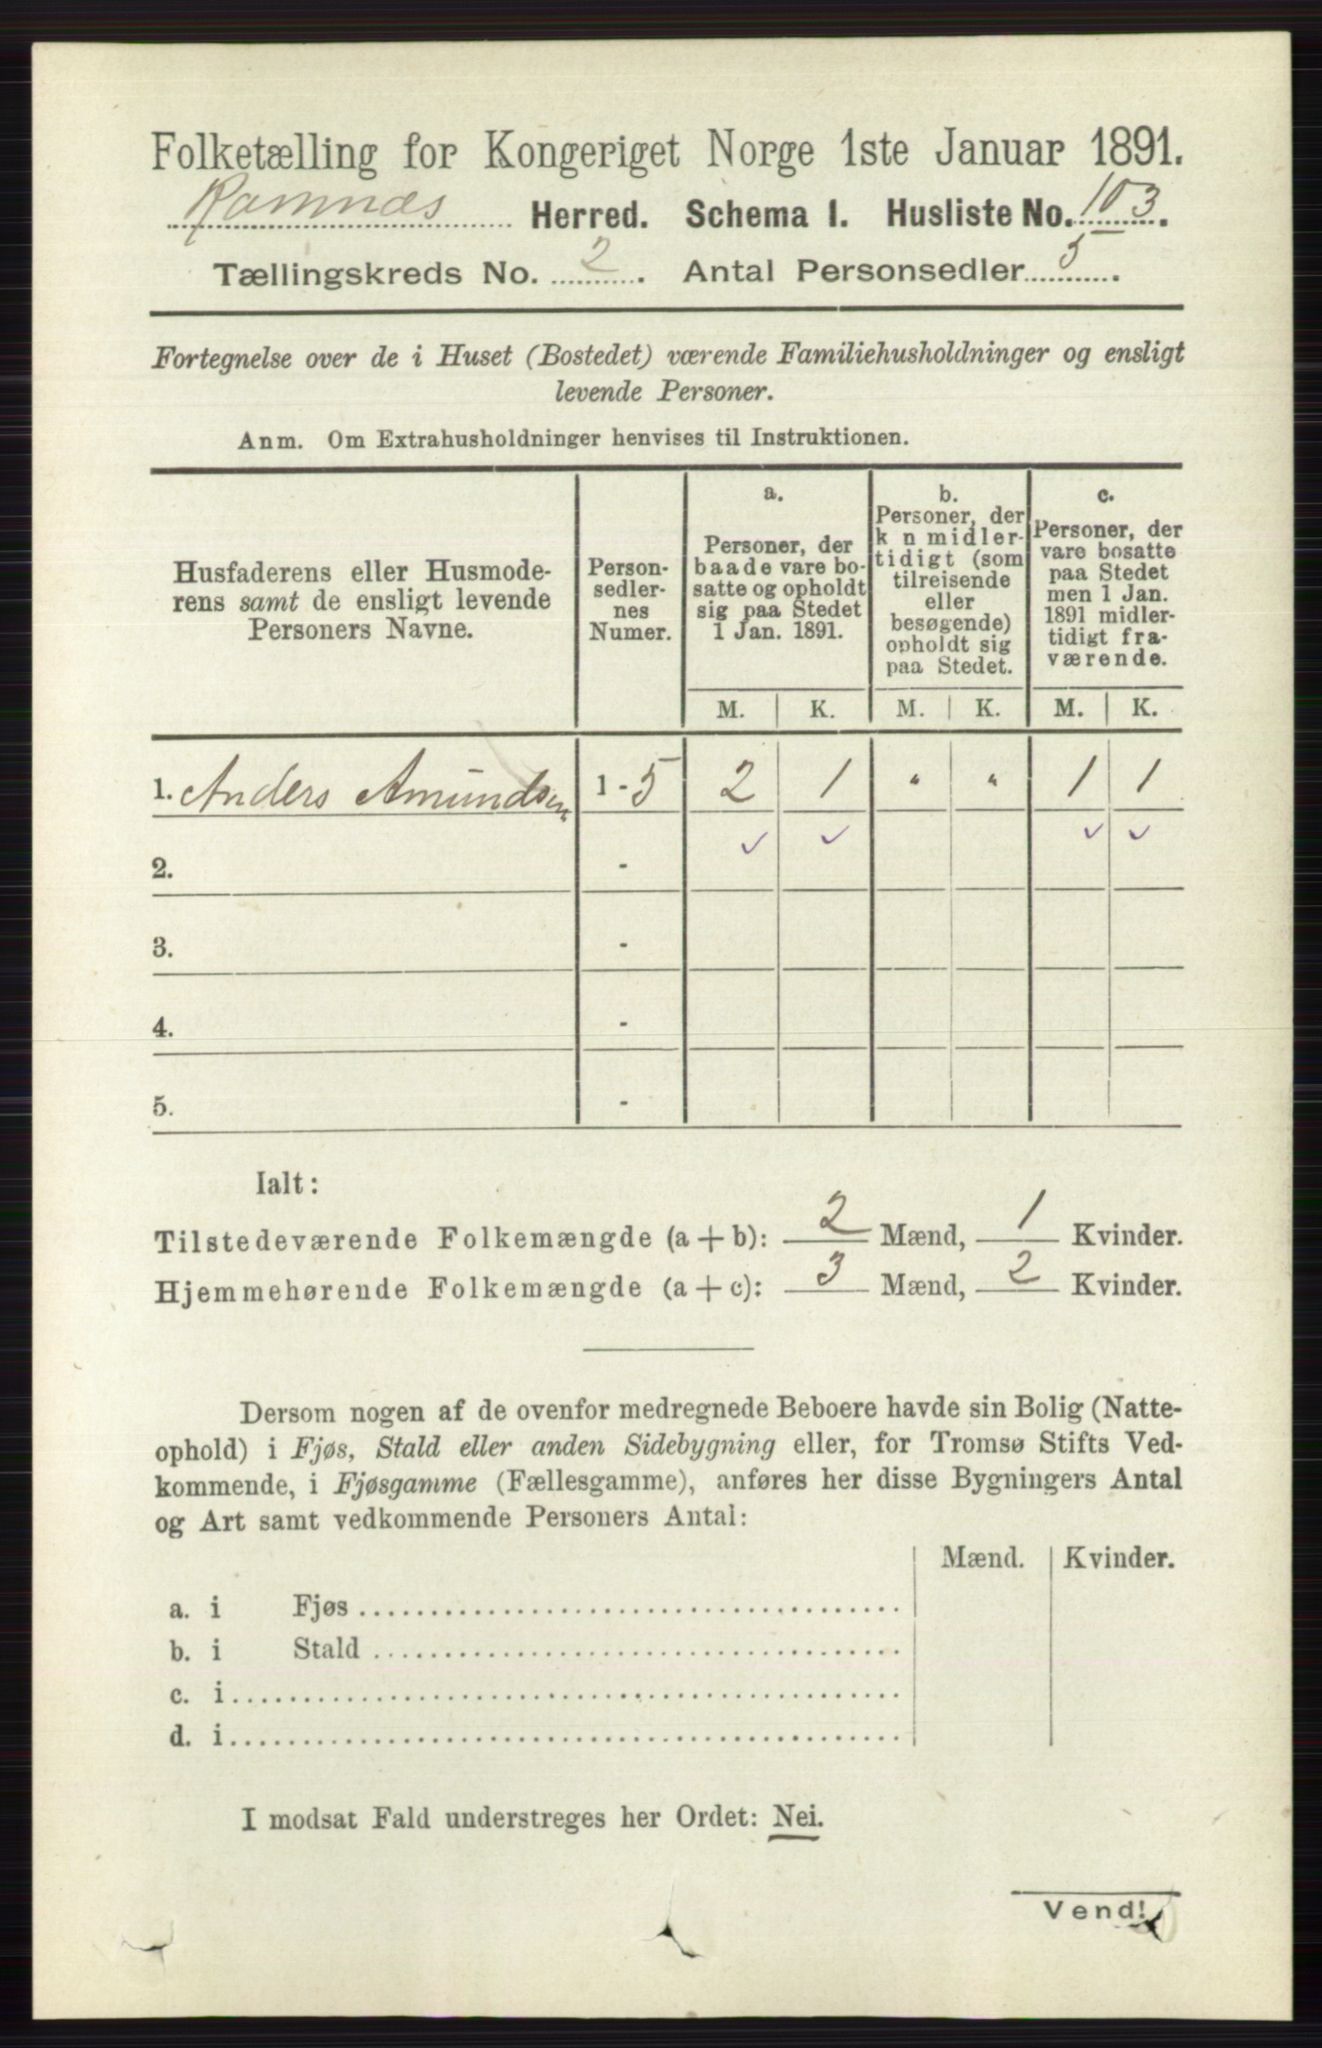 Folketælling for Kongeriget Norge 1ste Januar 1891.
Ramnæs Herred. Schema I. Husliste No. 103.
Tællingskreds No. 2. Antal Personsedler 5.
Fortegnelse over de i Huset (Bostedet) værende Familiehusholdninger og ensligt
levende Personer.
Anm. Om Extrahusholdninger henvises til Instruktionen.
Husfaderens eller Husmode-
rens samt de ensligt levende
Personers Navne.
Person-
sedler-
nes
Numer.
a.
Personer, der
baade vare bo-
satte og opholdt
sig paa Stedet
1 Jan. 1891.
b.
Personer, der
k n midler-
tidigt (som
tilreisende
eller
besøgende)
opholdt sig
paa Stedet.
c.
Personer, der
vare bosatte
paa Stedet
men 1 Jan.
1891 midler-
tidigt fra-
værende.
M. K. M. K. M. K.
1. Anders Amundsen 1 - 5 2 1 " " 1 1
✓ ✓ ✓ ✓
2. -
3. -
4. -
5. -
Ialt:
Tilstedeværende Folkemængde (a + b): 2 Mænd, 1 Kvinder.
Hjemmehørende Folkemængde (a + c): 3 Mænd, 2 Kvinder.
Dersom nogen af de ovenfor medregnede Beboere havde sin Bolig (Natte-
ophold) i Fjøs, Stald eller anden Sidebygning eller, for Tromsø Stifts Ved-
kommende, i Fjøsgamme (Fællesgamme), anføres her disse Bygningers Antal
og Art samt vedkommende Personers Antal:
Mænd. Kvinder.
a. i Fjøs
b. i Stald
c. i
d. i
I modsat Fald understreges her Ordet: Nei.
Vend!